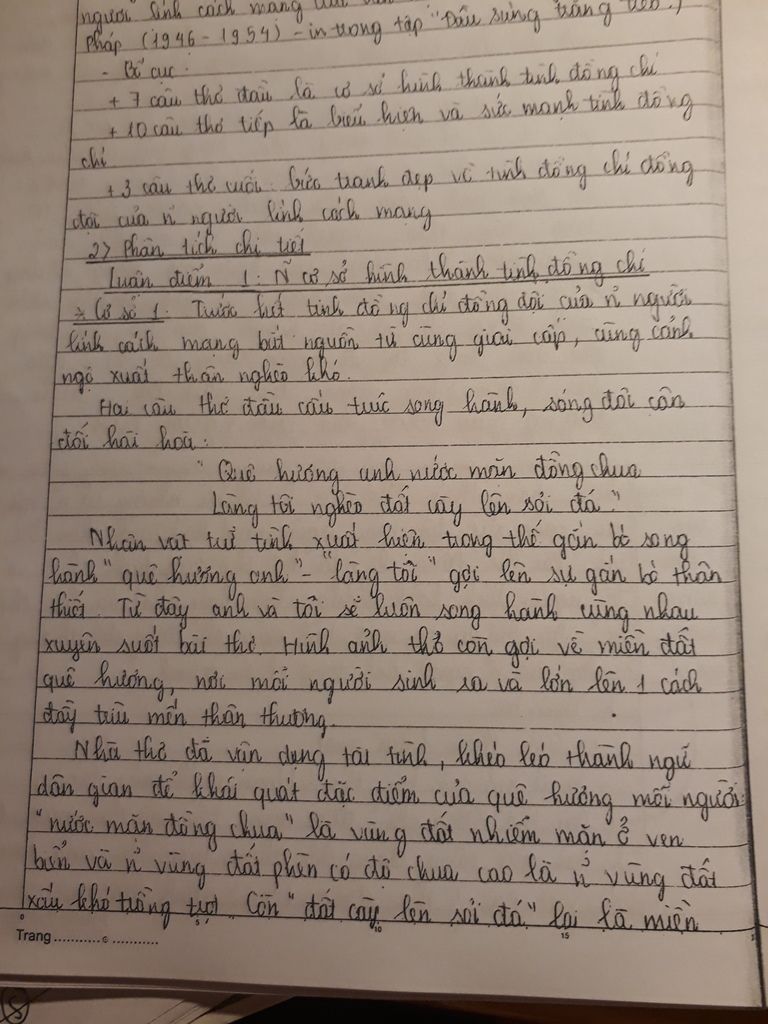 người lính cách mạng
Pháp (1946 - 1954) - in trong tập "Đầu súng trăng treo".
- Bố cục:
+ 7 câu thơ đầu là cơ sở hình thành tình đồng chí
+ 10 câu thơ tiếp là biểu hiện và sức mạnh tình đồng
chí
+ 3 câu thơ cuối: bức tranh đẹp về tình đồng chí đồng
đội của n~ người lính cách mạng
2> Phân tích chi tiết
Luận điểm 1: N~ cơ sở hình thành tình đồng chí
* Cơ sở 1: Trước hết tình đồng chí đồng đội của n~ người
lính cách mạng bắt nguồn từ cùng giai cấp, cùng cảnh
ngộ xuất thân nghèo khó.
Hai câu thơ đầu cấu trúc song hành, sóng đôi cân
đối hài hoà:
"Quê hương anh nước mặn đồng chua
Làng tôi nghèo đất cày lên sỏi đá"
Nhân vật trữ tình xuất hiện trong thế gắn bó song
hành "quê hương anh" - "làng tôi" gợi lên sự gắn bó thân
thiết. Từ đây anh và tôi sẽ luôn song hành cùng nhau
xuyên suốt bài thơ. Hình ảnh thơ còn gợi về miền đất
quê hương, nơi mỗi người sinh ra và lớn lên 1 cách
đầy trìu mến thân thương.
Nhà thơ đã vận dụng tài tình, khéo léo thành ngữ
dân gian để khái quát đặc điểm của quê hương mỗi người:
"nước mặn đồng chua" là vùng đất nhiễm mặn ở ven
biển và n~ vùng đất phèn có độ chua cao là n~ vùng đất
xấu khó trồng trọt. Còn "đất cày lên sỏi đá" lại là miền
Trang
5 10 15